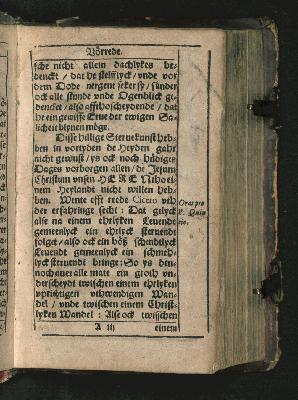 Vörrede.
sche nicht allein dachlykes be-
dencket / dat he stelfflyck / vnde vor
dem Dode nergent seker sy / sünder
ock alle stunde vnde Ogenblick ge-
dencket / also affthoscheydende / dat
he ein gewisse Erue der ewigen Sa-
licheit blyuen möge.
Disse hillige Steruekunst heb-
ben in vortyden de Heyden gahr
nicht gewust / ys ock noch hüdiges
Dages vorborgen allen / de Jesum
Christum vnsen HERE
nen Heylande nicht willen heb-
ben. Wente efft rede Cicero vth
der erfahringe secht : Dat gelyck
alse na einem ehrlyken Leuende
gemeenlyck ein ehrlyck steruendt
folget / also ock ein böß schendtlyck
Leuendt gemeenlyck ein schmeh-
lyck steruendt bringe : So ys den-
noch auer alle mate ein groth vn-
derscheydt twischen einem ehrlyken
vprichtigen vthwendigen Wan-
del / vnde twischen einem Christ-
lyken Wandel : Alse ock twisschen
A iij
einem
Orat pro
P. Quin